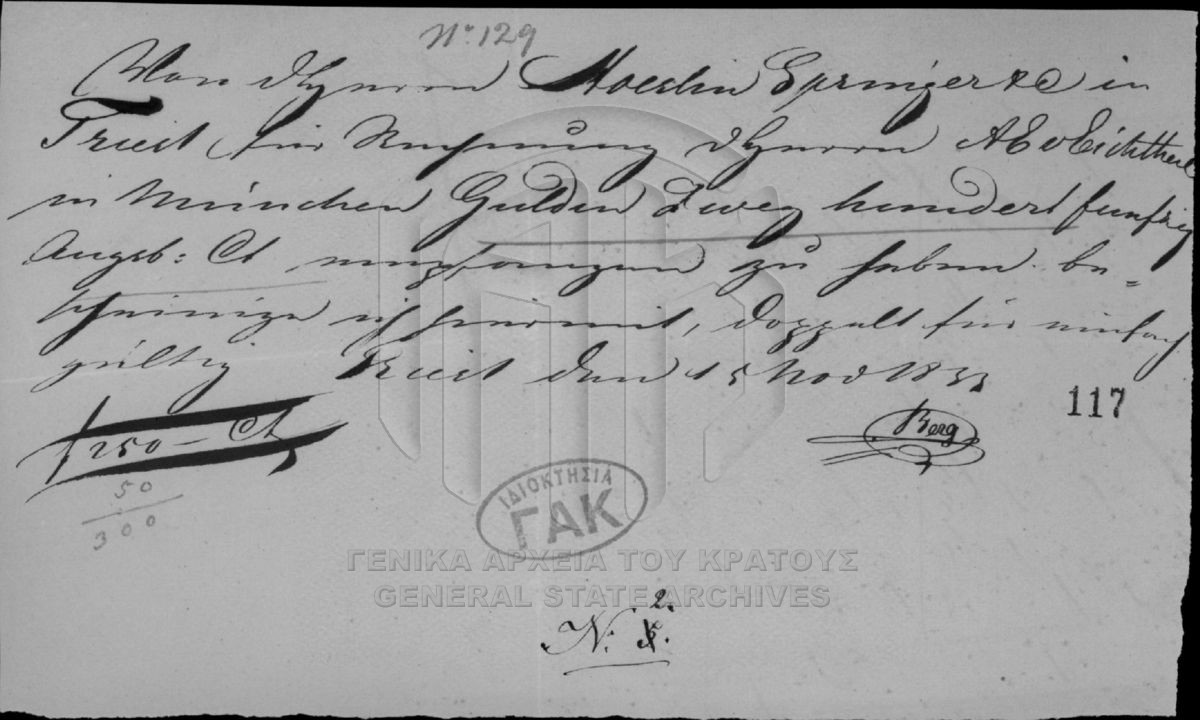 No 129
Von Herren Moeslin Springer & C in
Triest für Rechnung Herren AE v Eichthal
in München Gulden Zwey hundert funfzig
Augsb: Ct empfangen zu haben be=
scheinige ich hiermit, doppelt für einfach
gültig Triest den 15 Nov 1833
117
f 250 – Ct
Berg
50
300
ΙΔΙΟΚΤΗΣΙΑ
ΓΑΚ
ΓΕΝΙΚΑ ΑΡΧΕΙΑ ΤΟΥ ΚΡΑΤΟΥΣ
GENERAL STATE ARCHIVES
N: 2.